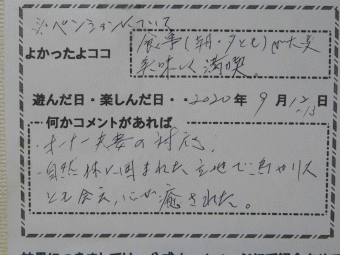 ※ペンションについて
よかったよココ
食事(朝・夕とも)が大変
美味しく満喫。
遊んだ日・楽しんだ日・・2020年 9月 12/13日
何かコメントがあれば
・オーナー夫妻の対応。
・自然林に囲まれた立地で鳥やリス
とも会え、心が癒された。